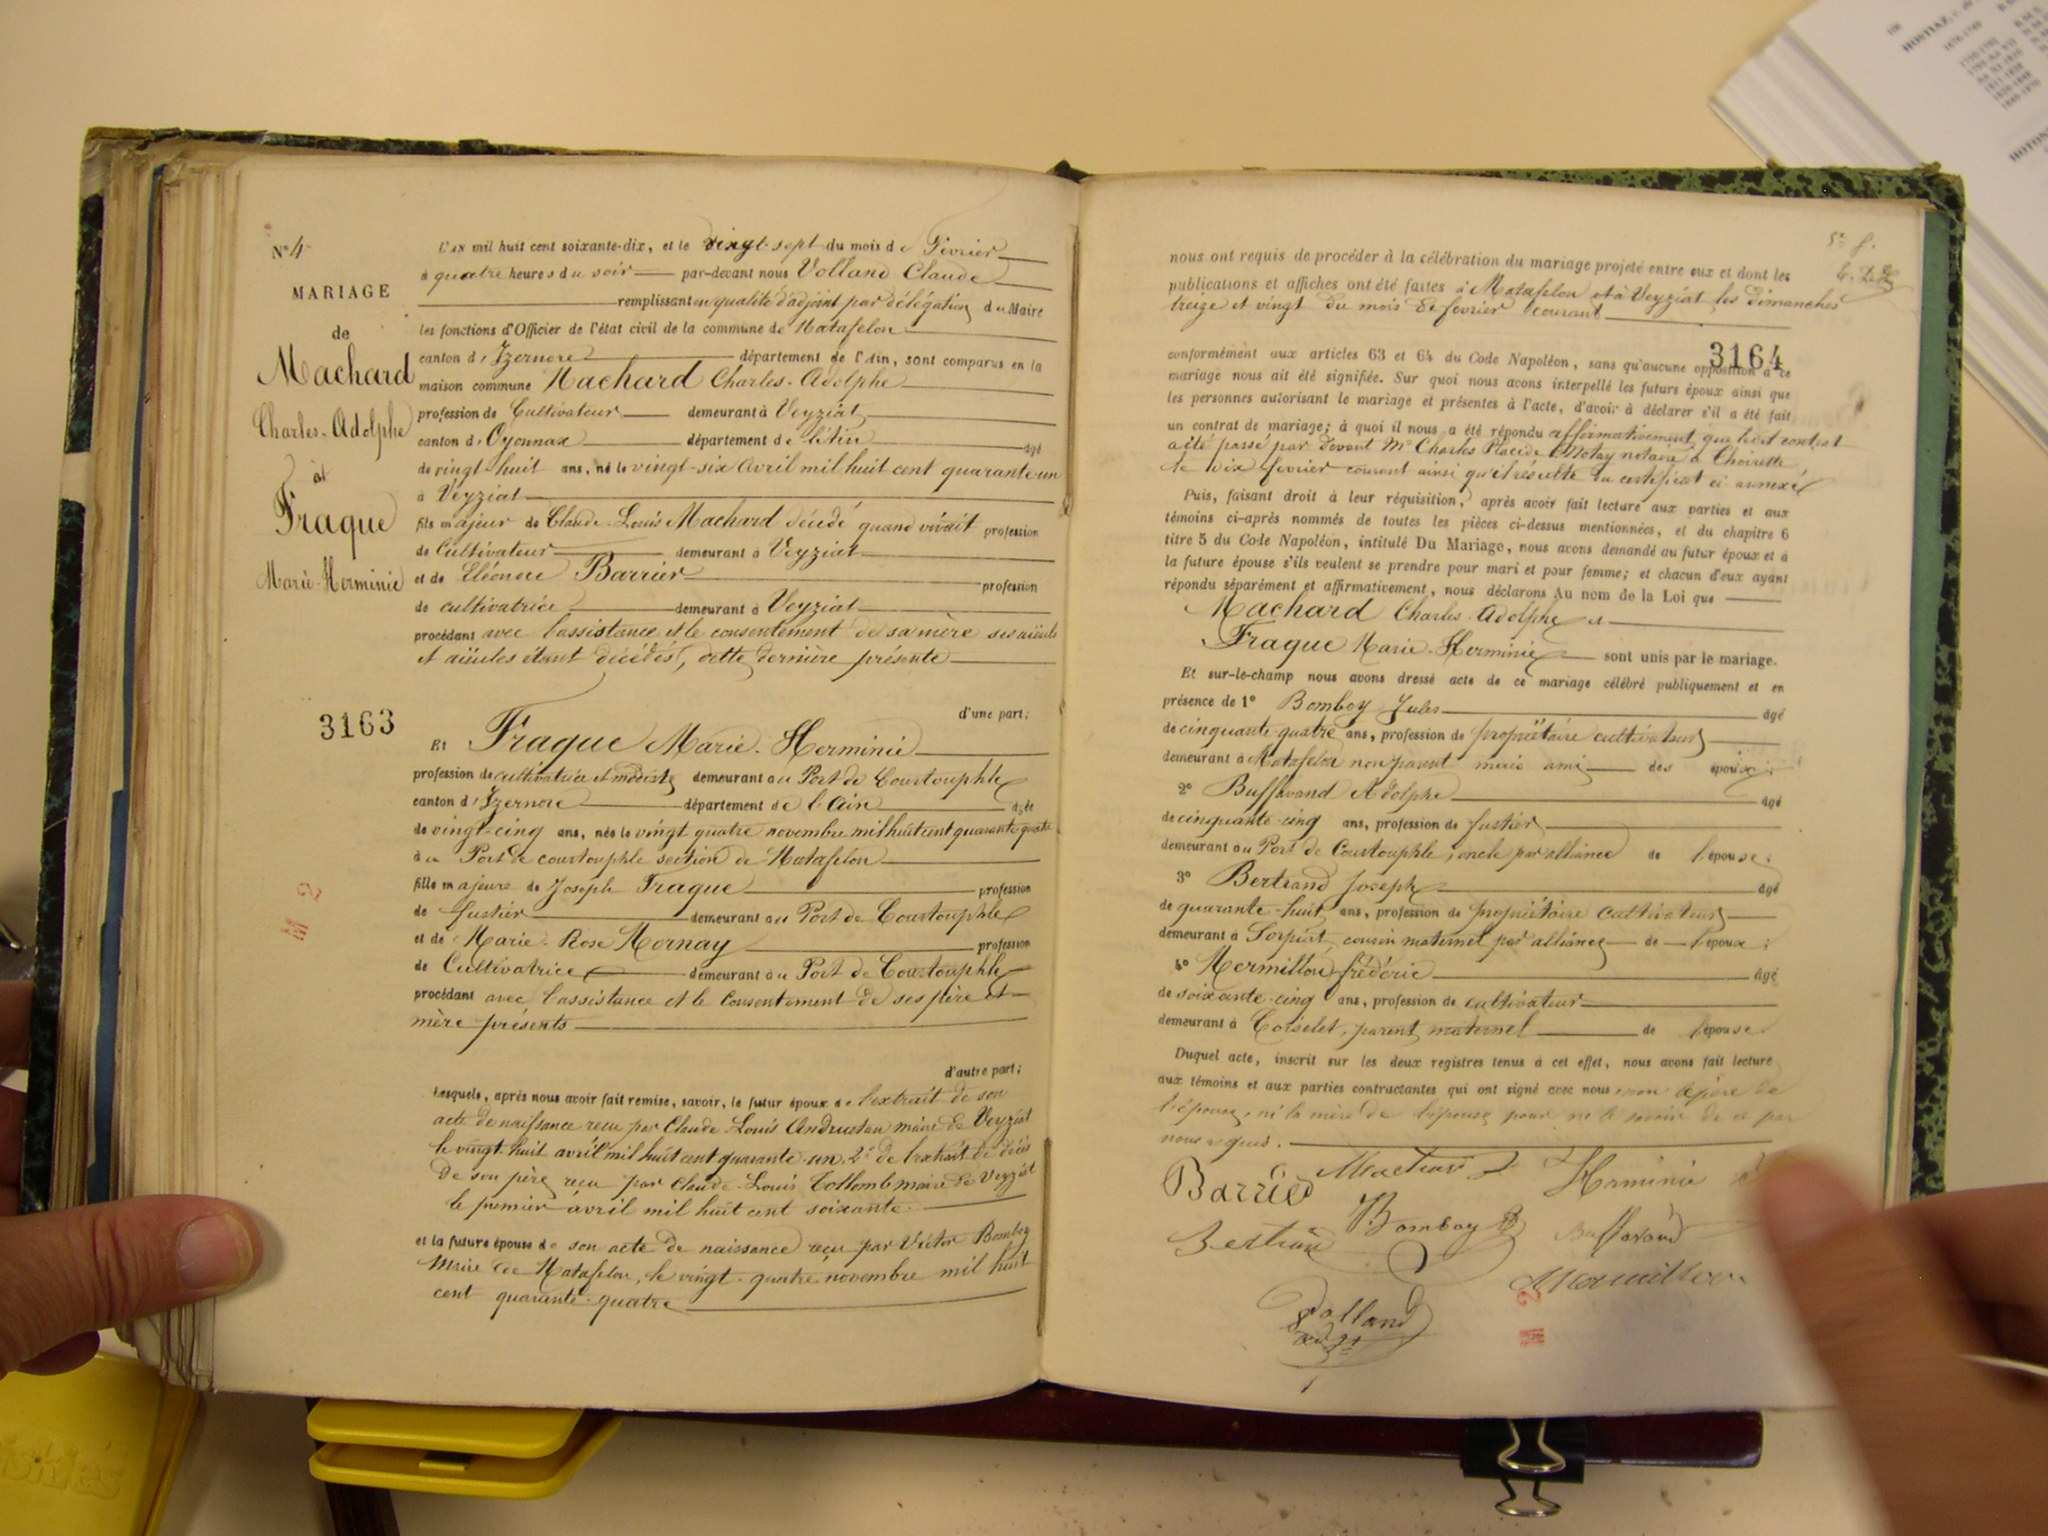 N° 4
MARIAGE
de
Machard
Charles-Adolphe
et
Fraque
Marie-Herminie
3163
L'AN mil huit cent soixante-dix, et le vingt-sept du mois de Février
à quatre heures du soir par-devant nous Volland Claude
remplissant en qualité d'adjoint par délégation du Maire
les fonctions d'Officier de l'état civil de la commune de Matafelon
canton d'Izernore département de l'Ain, sont comparus en la
maison commune Machard Charles-Adolphe
profession de Cultivateur demeurant à Veyziat
canton d'Oyonnax département de l'Ain âgé
de vingt-huit ans, né le vingt-six avril mil huit cent quarante un
à Veyziat
fils majeur de Claude-Louis Machard décédé quand vivait profession
de Cultivateur demeurant à Veyziat
et de Eléonore Barrier profession
de cultivatrice demeurant à Veyziat
procédant avec l'assistance et le consentement de sa mère ses aïeuls
et aïeules étant décédés, cette dernière présente
d'une part;
Et Fraque Marie-Herminie
profession de cultivatrice et modiste demeurant au Port de Courtouphle
canton d'Izernore département de l'Ain âgée
de vingt-cinq ans, née le vingt quatre novembre mil huit cent quarante quatre
à au Port de courtouphle section de Matafelon
fille majeure de Joseph Fraque profession
de fustier demeurant au Port de Courtouphle
et de Marie-Rose Mornay profession
de Cultivatrice demeurant au Port de Courtouphle
procédant avec l'assistance et le consentement de ses père et
mère présents
d'autre part;
Lesquels, après nous avoir fait remise, savoir, le futur époux de l'extrait de son
acte de naissance reçu par Claude-Louis maire de Veyziat
le vingt huit avril mil huit cent quarante-un, 2° de l'extrait de décès
de son père reçu par Claude-Louis Tollomb maire de Veyziat
le premier avril mil huit cent soixante.
et la future épouse de son acte de naissance reçu par Victor Bomboy
Maire de Matafelon, le vingt-quatre novembre mil huit
cent quarante-quatre
nous ont requis de procéder à la célébration du mariage projeté entre eux et dont les
publications et affiches ont été faites à Matafelon et à Veyziat les dimanches
treize et vingt du mois de fevrier courant
3164
conformément aux articles 63 et 64 du Code Napoléon, sans qu'aucune opposition à ce
mariage nous ait été signifiée. Sur quoi nous avons interpellé les futurs époux ainsi que
les personnes autorisant le mariage et présentes à l'acte, d'avoir à déclarer s'il a été fait
un contrat de mariage; à quoi il nous a été répondu affirmativement, que ledit contrat
a été passé par devant Me Charles Placide notaire à Thoirette
le dix fevrier courant ainsi qu'il résulte du certificat ci annexé
Puis, faisant droit à leur réquisition, après avoir fait lecture aux parties et aux
témoins ci-après nommés de toutes les pièces ci-dessus mentionnées, et du chapitre 6
titre 5 du Code Napoléon, intitulé Du Mariage, nous avons demandé au futur époux et à
la future épouse s'ils veulent se prendre pour mari et pour femme; et chacun d'eux ayant
répondu séparément et affirmativement, nous déclarons Au nom de la Loi que
Machard Charles-Adolphe et
Fraque Marie-Herminie sont unis par le mariage.
Et sur-le-champ nous avons dressé acte de ce mariage célébré publiquement et en
présence de 1° Bomboy Jules âgé
de cinquante quatre ans, profession de propriétaire cultivateur
demeurant à Matafelon non parent mais ami des époux;
2° Buffavand Adolphe âgé
de cinquante-cinq ans, profession de fustier
demeurant au Port de Courtouphle, oncle par alliance de l'épouse;
3° Bertrand Joseph âgé
de quarante-huit ans, profession de propriétaire cultivateur
demeurant à Sorpiat, cousin maternel par alliance de l'époux;
4° Mermillon frédéric âgé
de soixante-cinq ans, profession de cultivateur
demeurant à Coiselet, parent maternel de l'épouse
Duquel acte, inscrit sur les deux registres tenus à cet effet, nous avons fait lecture
aux témoins et aux parties contractantes qui ont signé avec nous, non le père de
l'épouse, ni la mère de l'épouse pour ne le savoir de ce par
nous requis.
Barrier Machard Herminie
Bertrand Bomboy Buffavand
Mermillon
Volland
adjt